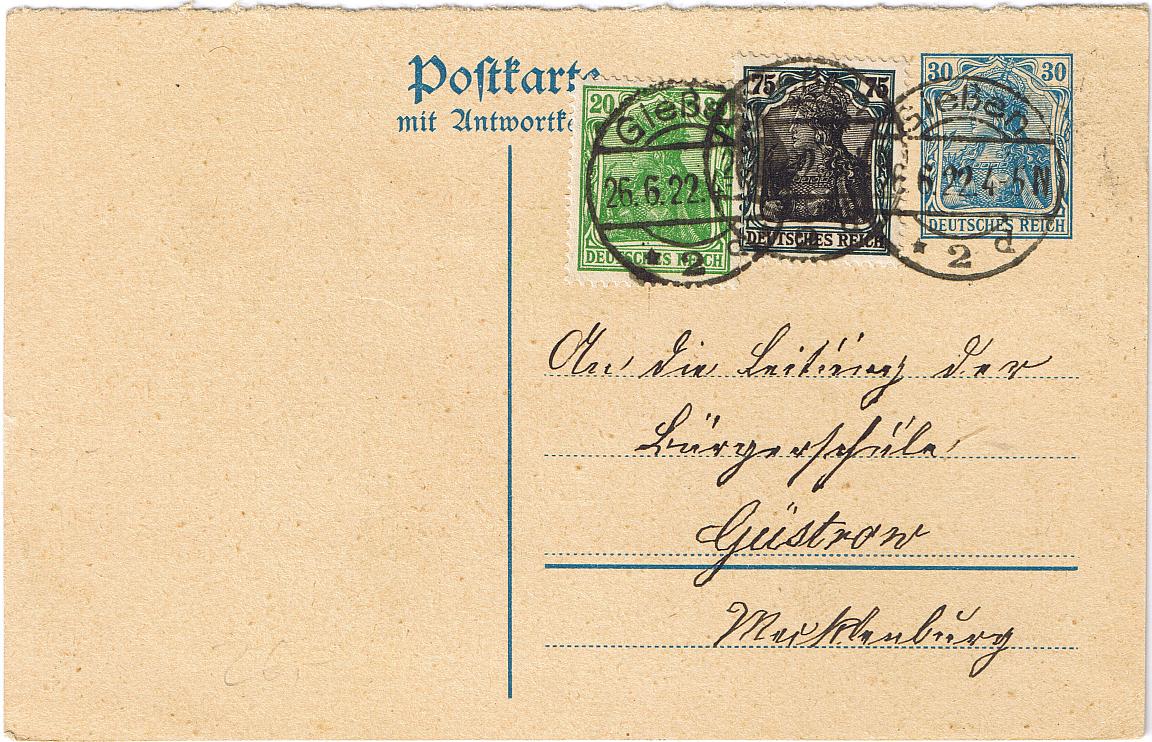 Postkarte
mit Antwortk
20 DEUTSCHES REICH
75 75 DEUTSCHES REICH
30 30 DEUTSCHES REICH
Gieße
26.6.22.
* 2 d
Gießen
6.22.4-5N
* 2 d
An die Leitung der
Bürgerschule
Güstrow
Mecklenburg